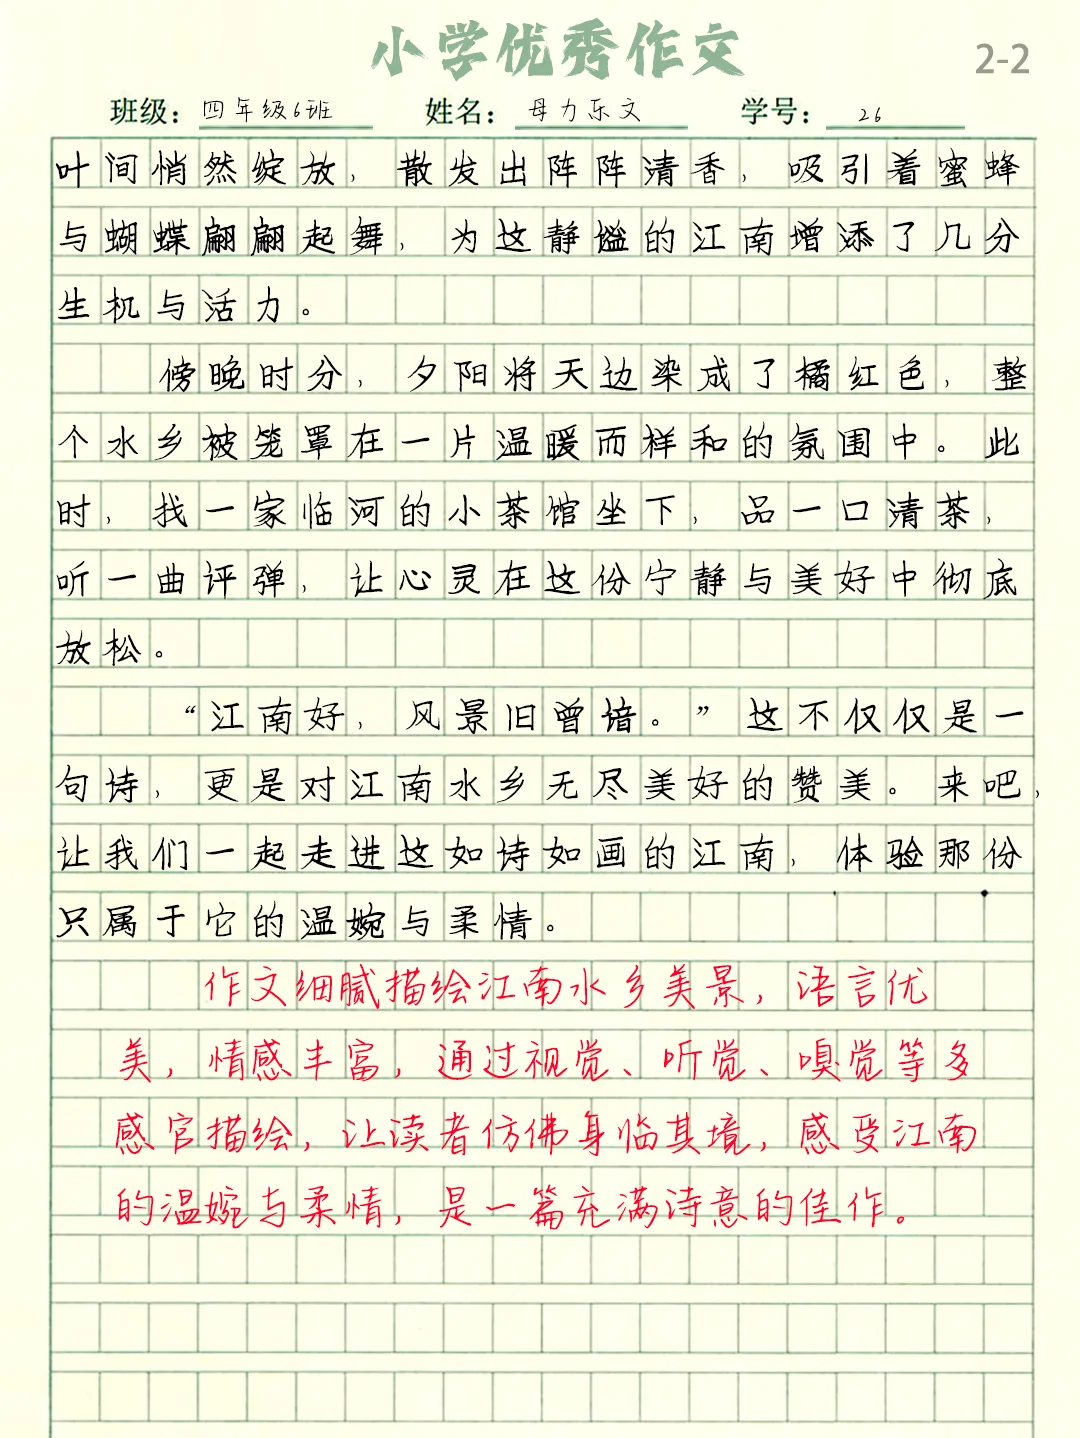 小学优秀作文
2-2
班级：四年级6班 姓名：母力乐文 学号：26
叶间悄然绽放，散发出阵阵清香，吸引着蜜蜂
与蝴蝶翩翩起舞，为这静谧的江南增添了几分
生机与活力。
傍晚时分，夕阳将天边染成了橘红色，整
个水乡被笼罩在一片温暖而祥和的氛围中。此
时，找一家临河的小茶馆坐下，品一口清茶，
听一曲评弹，让心灵在这份宁静与美好中彻底
放松。
“江南好，风景旧曾谙。”这不仅仅是一
句诗，更是对江南水乡无尽美好的赞美。来吧，
让我们一起走进这如诗如画的江南，体验那份
只属于它的温婉与柔情。
作文细腻描绘江南水乡美景，语言优
美，情感丰富，通过视觉、听觉、嗅觉等多
感官描绘，让读者仿佛身临其境，感受江南
的温婉与柔情，是一篇充满诗意的佳作。